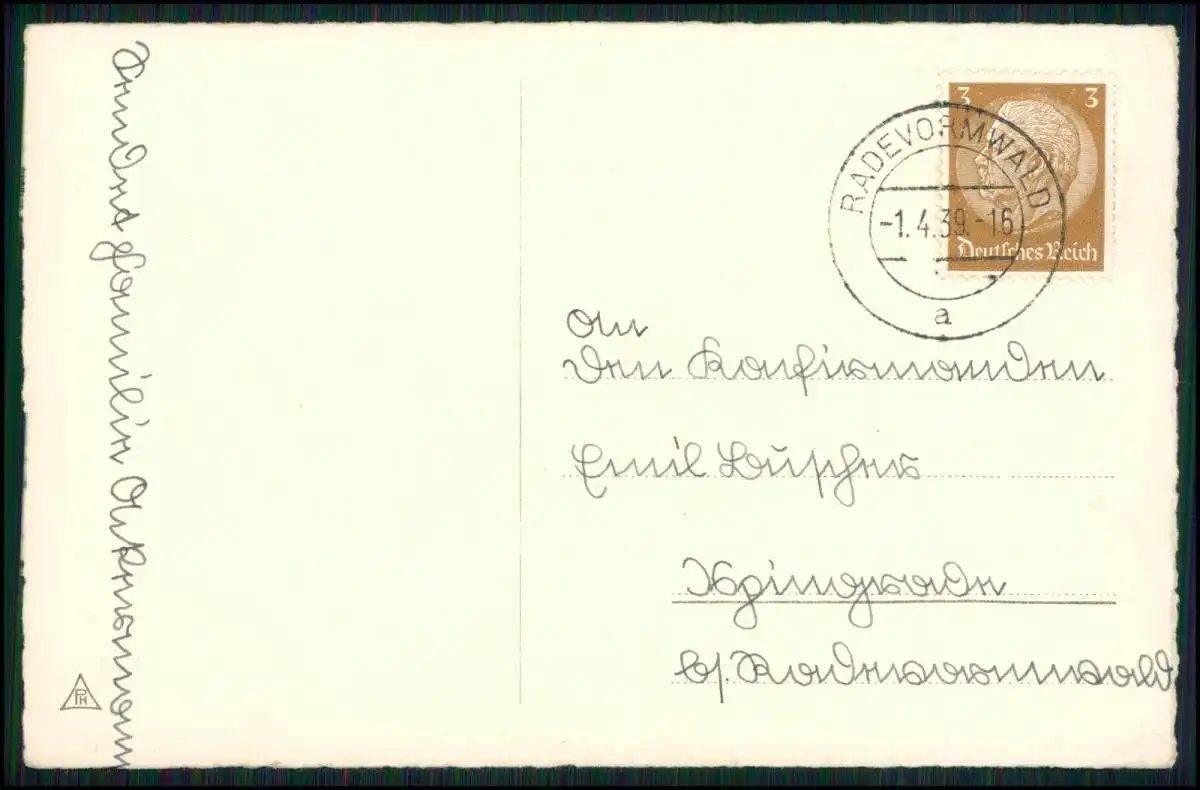 Sendet Familie Ackermann
3 3
Deutsches Reich
RADEVORMWALD
-1.4.39.-16
a
An
den Konfirmanden
Emil Büscher
Ispingrade
b/. Radevormwald
PH